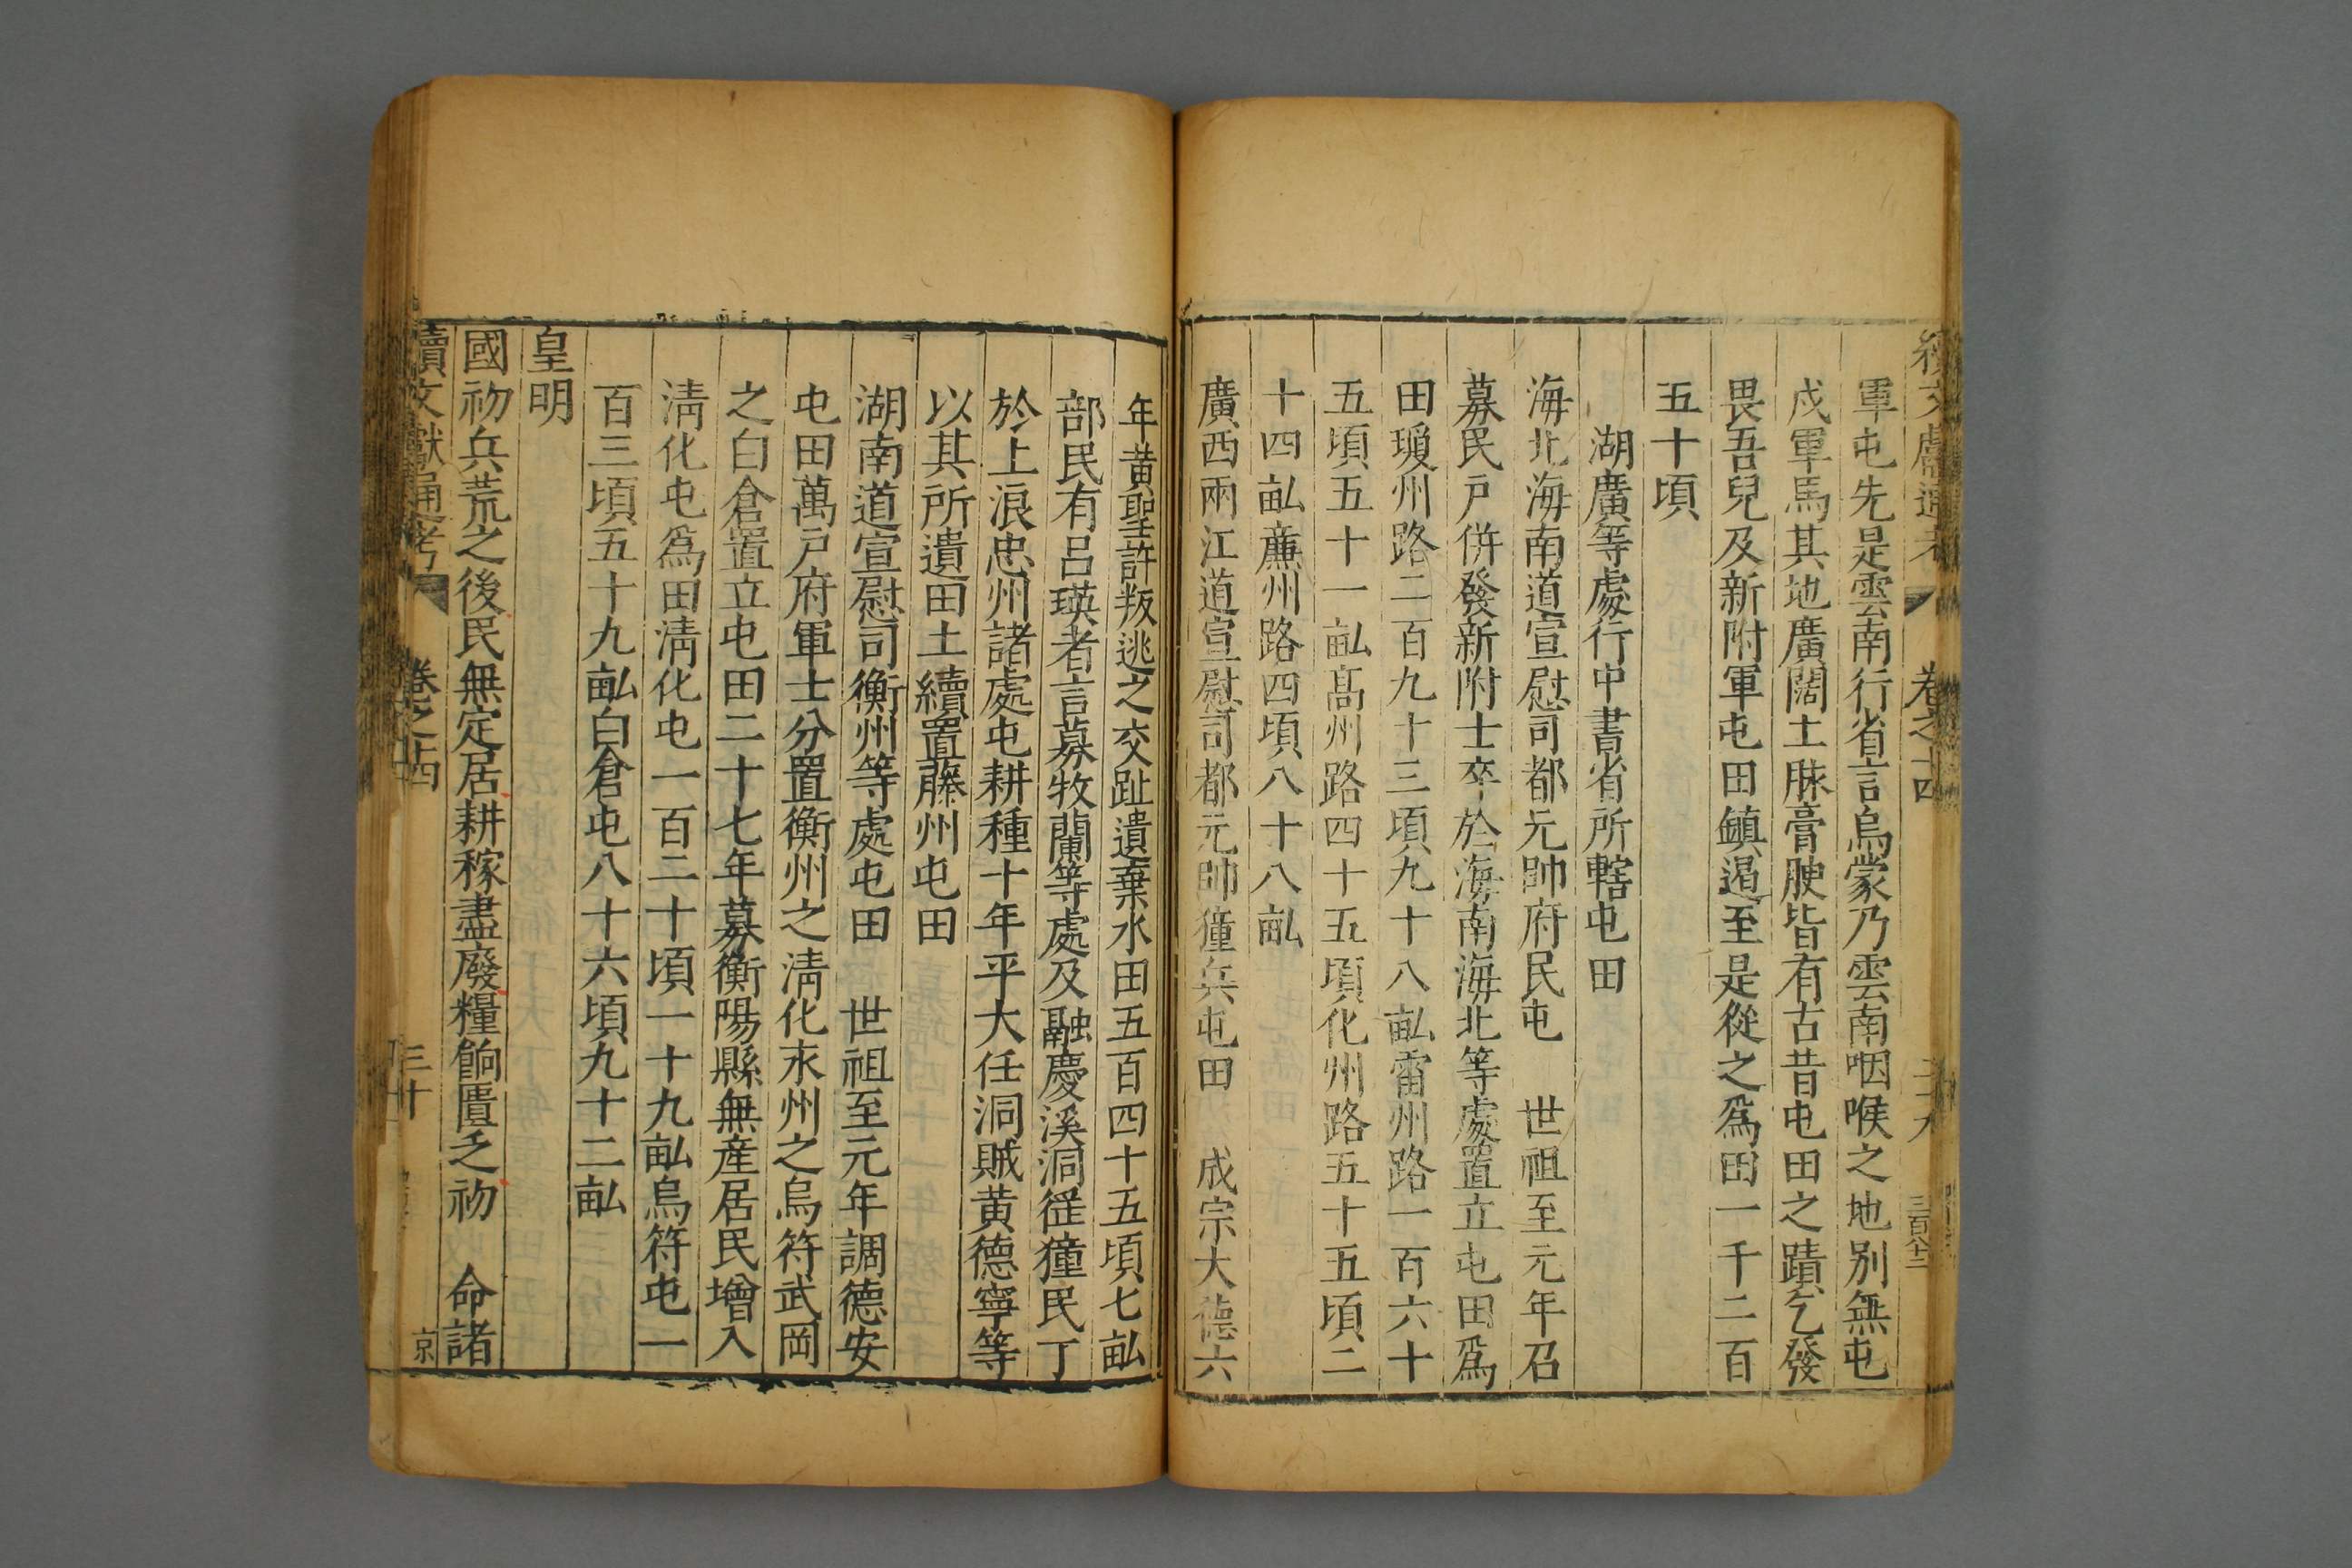 軍屯先是雲南行省言烏蒙乃雲南咽喉之地別無屯
戍軍馬其地廣闊土脉膏腴皆有古昔屯田之蹟乞發
畏吾兒及新附軍屯田鎮遏至是從之爲田一千二百
五十頃
湖廣等處行中書省所轄屯田
海北海南道宣慰司都元帥府民屯　世祖至元年召
募民戸併發新附士卒於海南海北等處置立屯田爲
田瓊州路二百九十三頃九十八畝雷州路一百六十
五頃五十一畝髙州路四十五頃化州路五十五頃二
十四畝亷州路四頃八十八畝
廣西兩江道宣慰司都元帥獞兵屯田　成宗大德六
年黄聖許叛逃之交趾遺棄水田五百四十五頃七畝
部民有吕瑛者言募牧蘭等處及融慶溪洞徭獞民丁
於上浪忠州諸處屯耕種十年平大任洞賊黄德寧等
以其所遺田土續置藤州屯田
湖南道宣慰司衡州等處屯田　世祖至元年調德安
屯田萬戸府軍士分置衡州之淸化永州之烏符武岡
之白倉置立屯田二十七年募衡陽縣無産居民增入
淸化屯爲田淸化屯一百二十頃一十九畝烏符屯一
百三頃五十九畝白倉屯八十六頃九十二畝
皇明
國初兵荒之後民無定居耕稼盡廢糧餉匱乏初　命諸
續文獻通考　卷之十四　三十　京